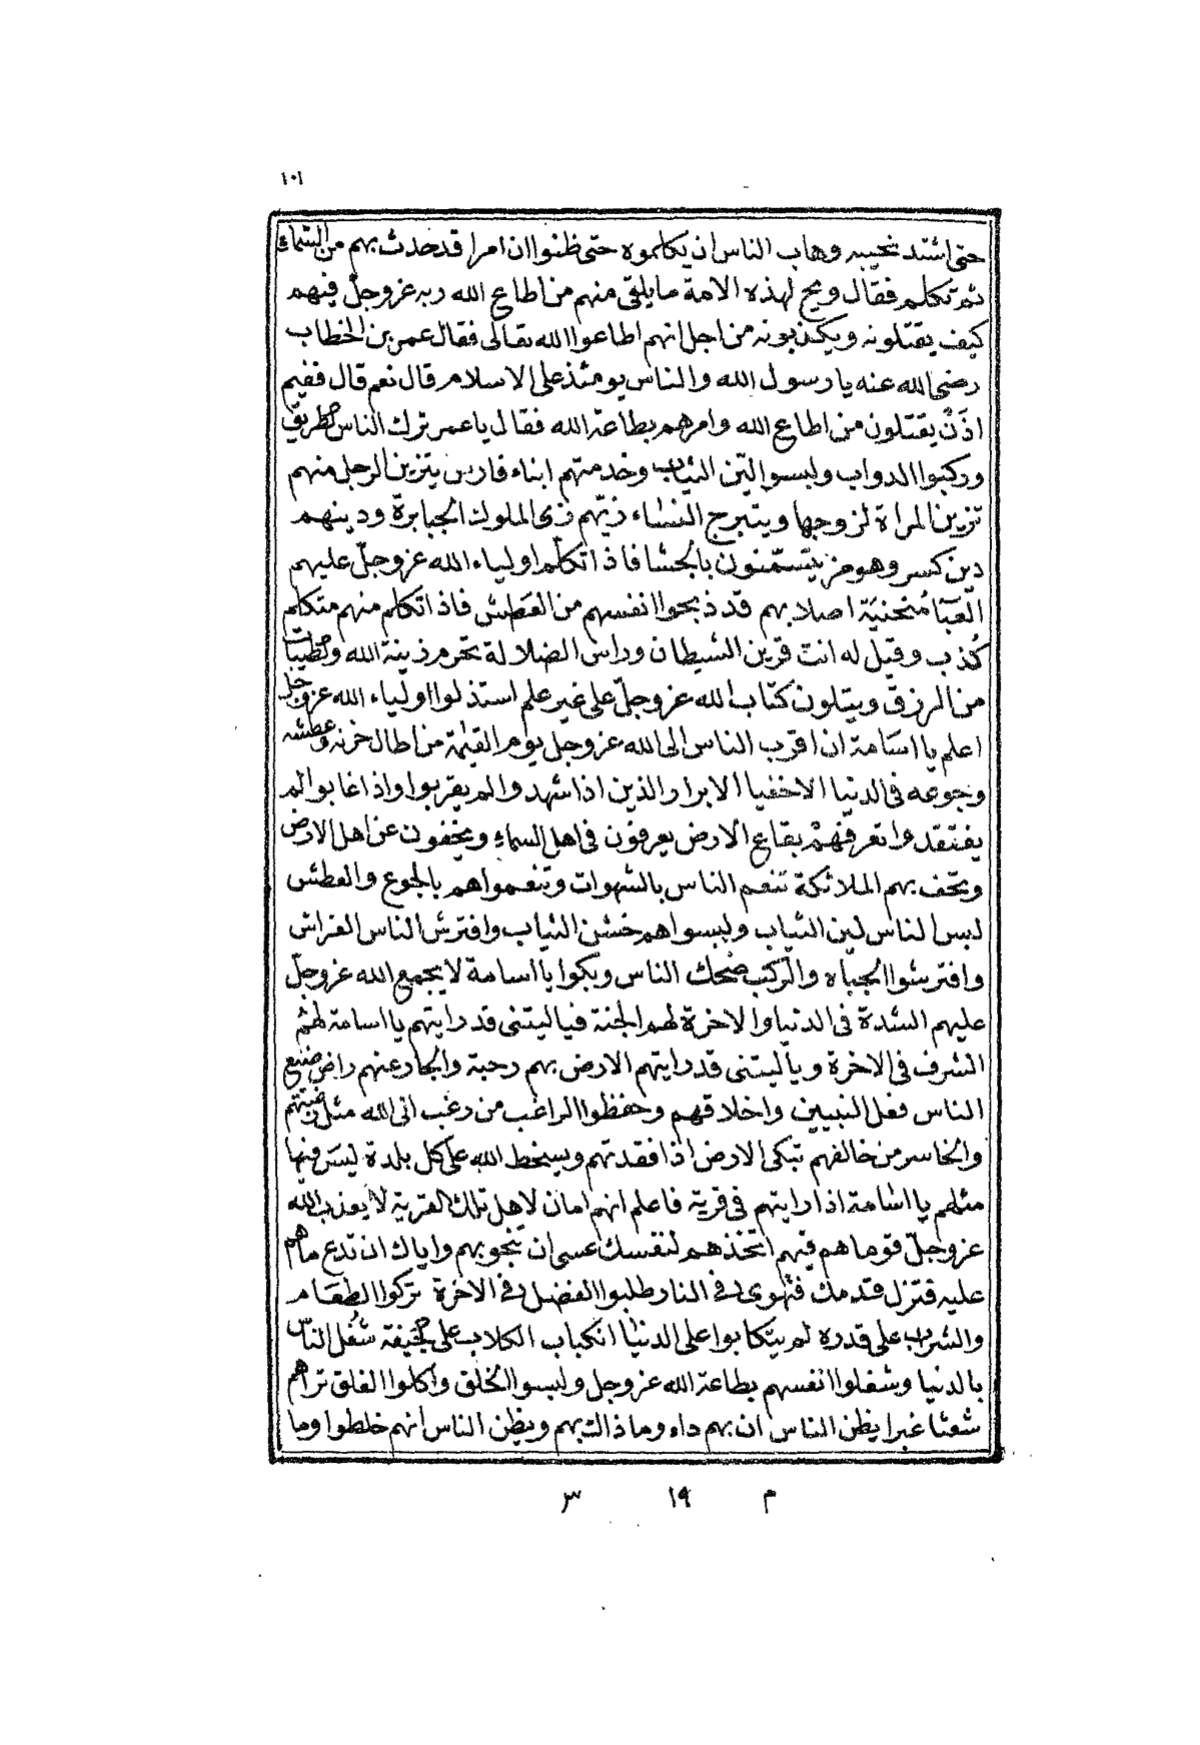 ١٠١
حتى اشتد نحيبه وهاب الناس ان يكلموه حتى ظنوا ان امرا قد حدث بهم من السماء
ثم تكلم فقال ويح لهذه الامة ما يلقى منهم من اطاع الله ربه عز وجل فيهم
كيف يقتلونه ويكذبونه من اجل انهم اطاعوا الله تعالى فقال عمر بن الخطاب
رضى الله عنه يا رسول الله والناس يومئذ على الاسلام قال نعم قال ففيم
اذن يقتلون من اطاع الله وامرهم بطاعة الله فقال يا عمر ترك الناس الطريق
وركبوا الدواب ولبسوا الين الثياب وخدمتهم ابناء فارس يتزين الرجل منهم
تزين المراة لزوجها ويتبرج النساء زيهم زى الملوك الجبابرة ودينهم
دين كسر وهومز يتسمنون بالجشا فاذا تكلم اولياء الله عز وجل عليهم
العبا منحنية اصلابهم قد ذبحوا انفسهم من العطش فاذا تكلم منهم متكلم
كذب وقيل له انت قرين الشيطان وراس الضلالة تحرم زينة الله والطيبات
من الرزق ويتلون كتاب الله عز وجل على غير علم استذلوا اولياء الله عز وجل
اعلم يا اسامة ان اقرب الناس الى الله عز وجل يوم القيمة من اطال حزنه وعطشه
وجوعه فى الدنيا الاخفيا الابرار الذين اذا شهدوا لم يقربوا واذا غابوا لم
يفتقدوا تعرفهم بقاع الارض يعرفون فى اهل السماء ويخفون عن اهل الارض
وتحف بهم الملائكة تنعم الناس بالشهوات وتنعموا هم بالجوع والعطش
لبس الناس لين الثياب ولبسوا هم خشن الثياب وافترش الناس الفراش
وافترشوا الجباه والركب ضحك الناس وبكوا يا اسامة لا يجمع الله عز وجل
عليهم الشدة فى الدنيا والاخرة لهم الجنة فيا ليتنى قد رايتهم يا اسامة لهم
الشرف فى الاخرة ويا ليتنى قد رايتهم الارض بهم رحبة والجبار عنهم راض ضيع
الناس فعل النبيين واخلاقهم وحفظوا الراغب من رغب الى الله مثل رغبتهم
والخاسر من خالفهم تبكى الارض اذا فقدتهم ويسخط الله على كل بلدة ليس فيها
مثلهم يا اسامة اذا رايتهم فى قرية فاعلم انهم امان لاهل تلك القرية لا يعذب الله
عز وجل قوما هم فيهم اتخذهم لنفسك عسى ان تنجو بهم واياك ان تدع ما هم
عليه فتزل قدمك فتهوى فى النار طلبوا الفضل فى الاخرة تركوا الطعام
والشرب على قدره لم يتكابوا على الدنيا انكباب الكلاب على الجيفة شغل الناس
بالدنيا وشغلوا انفسهم بطاعة الله عز وجل ولبسوا الخلق واكلوا الفلق تراهم
شعثا غبرا يظن الناس ان بهم داء وما ذاك بهم ويظن الناس انهم خلطوا وما
م ١٩ ٣